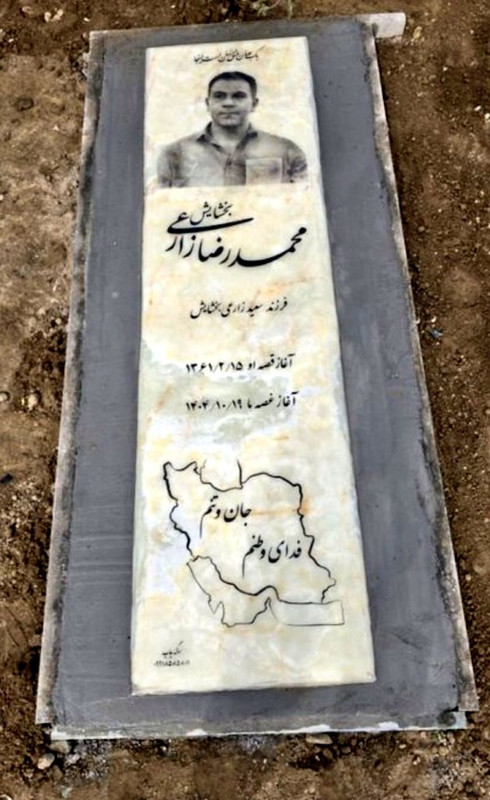 بخشایش
محمدرضا زارعی
فرزند سعید زارعی بخشایش
آغاز قصه او ۱۳۶۱/۲/۱۵
آغاز غصه ما ۱۴۰۴/۱۰/۱۹
جان و تنم
فدای وطنم